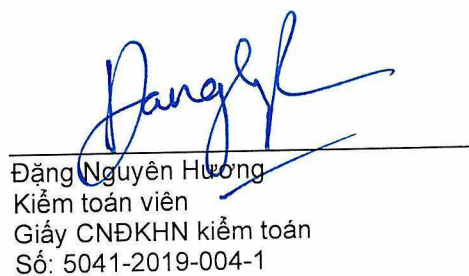 Đặng Nguyên Hương
Kiểm toán viên
Giấy CNĐKHN kiểm toán
Số: 5041-2019-004-1